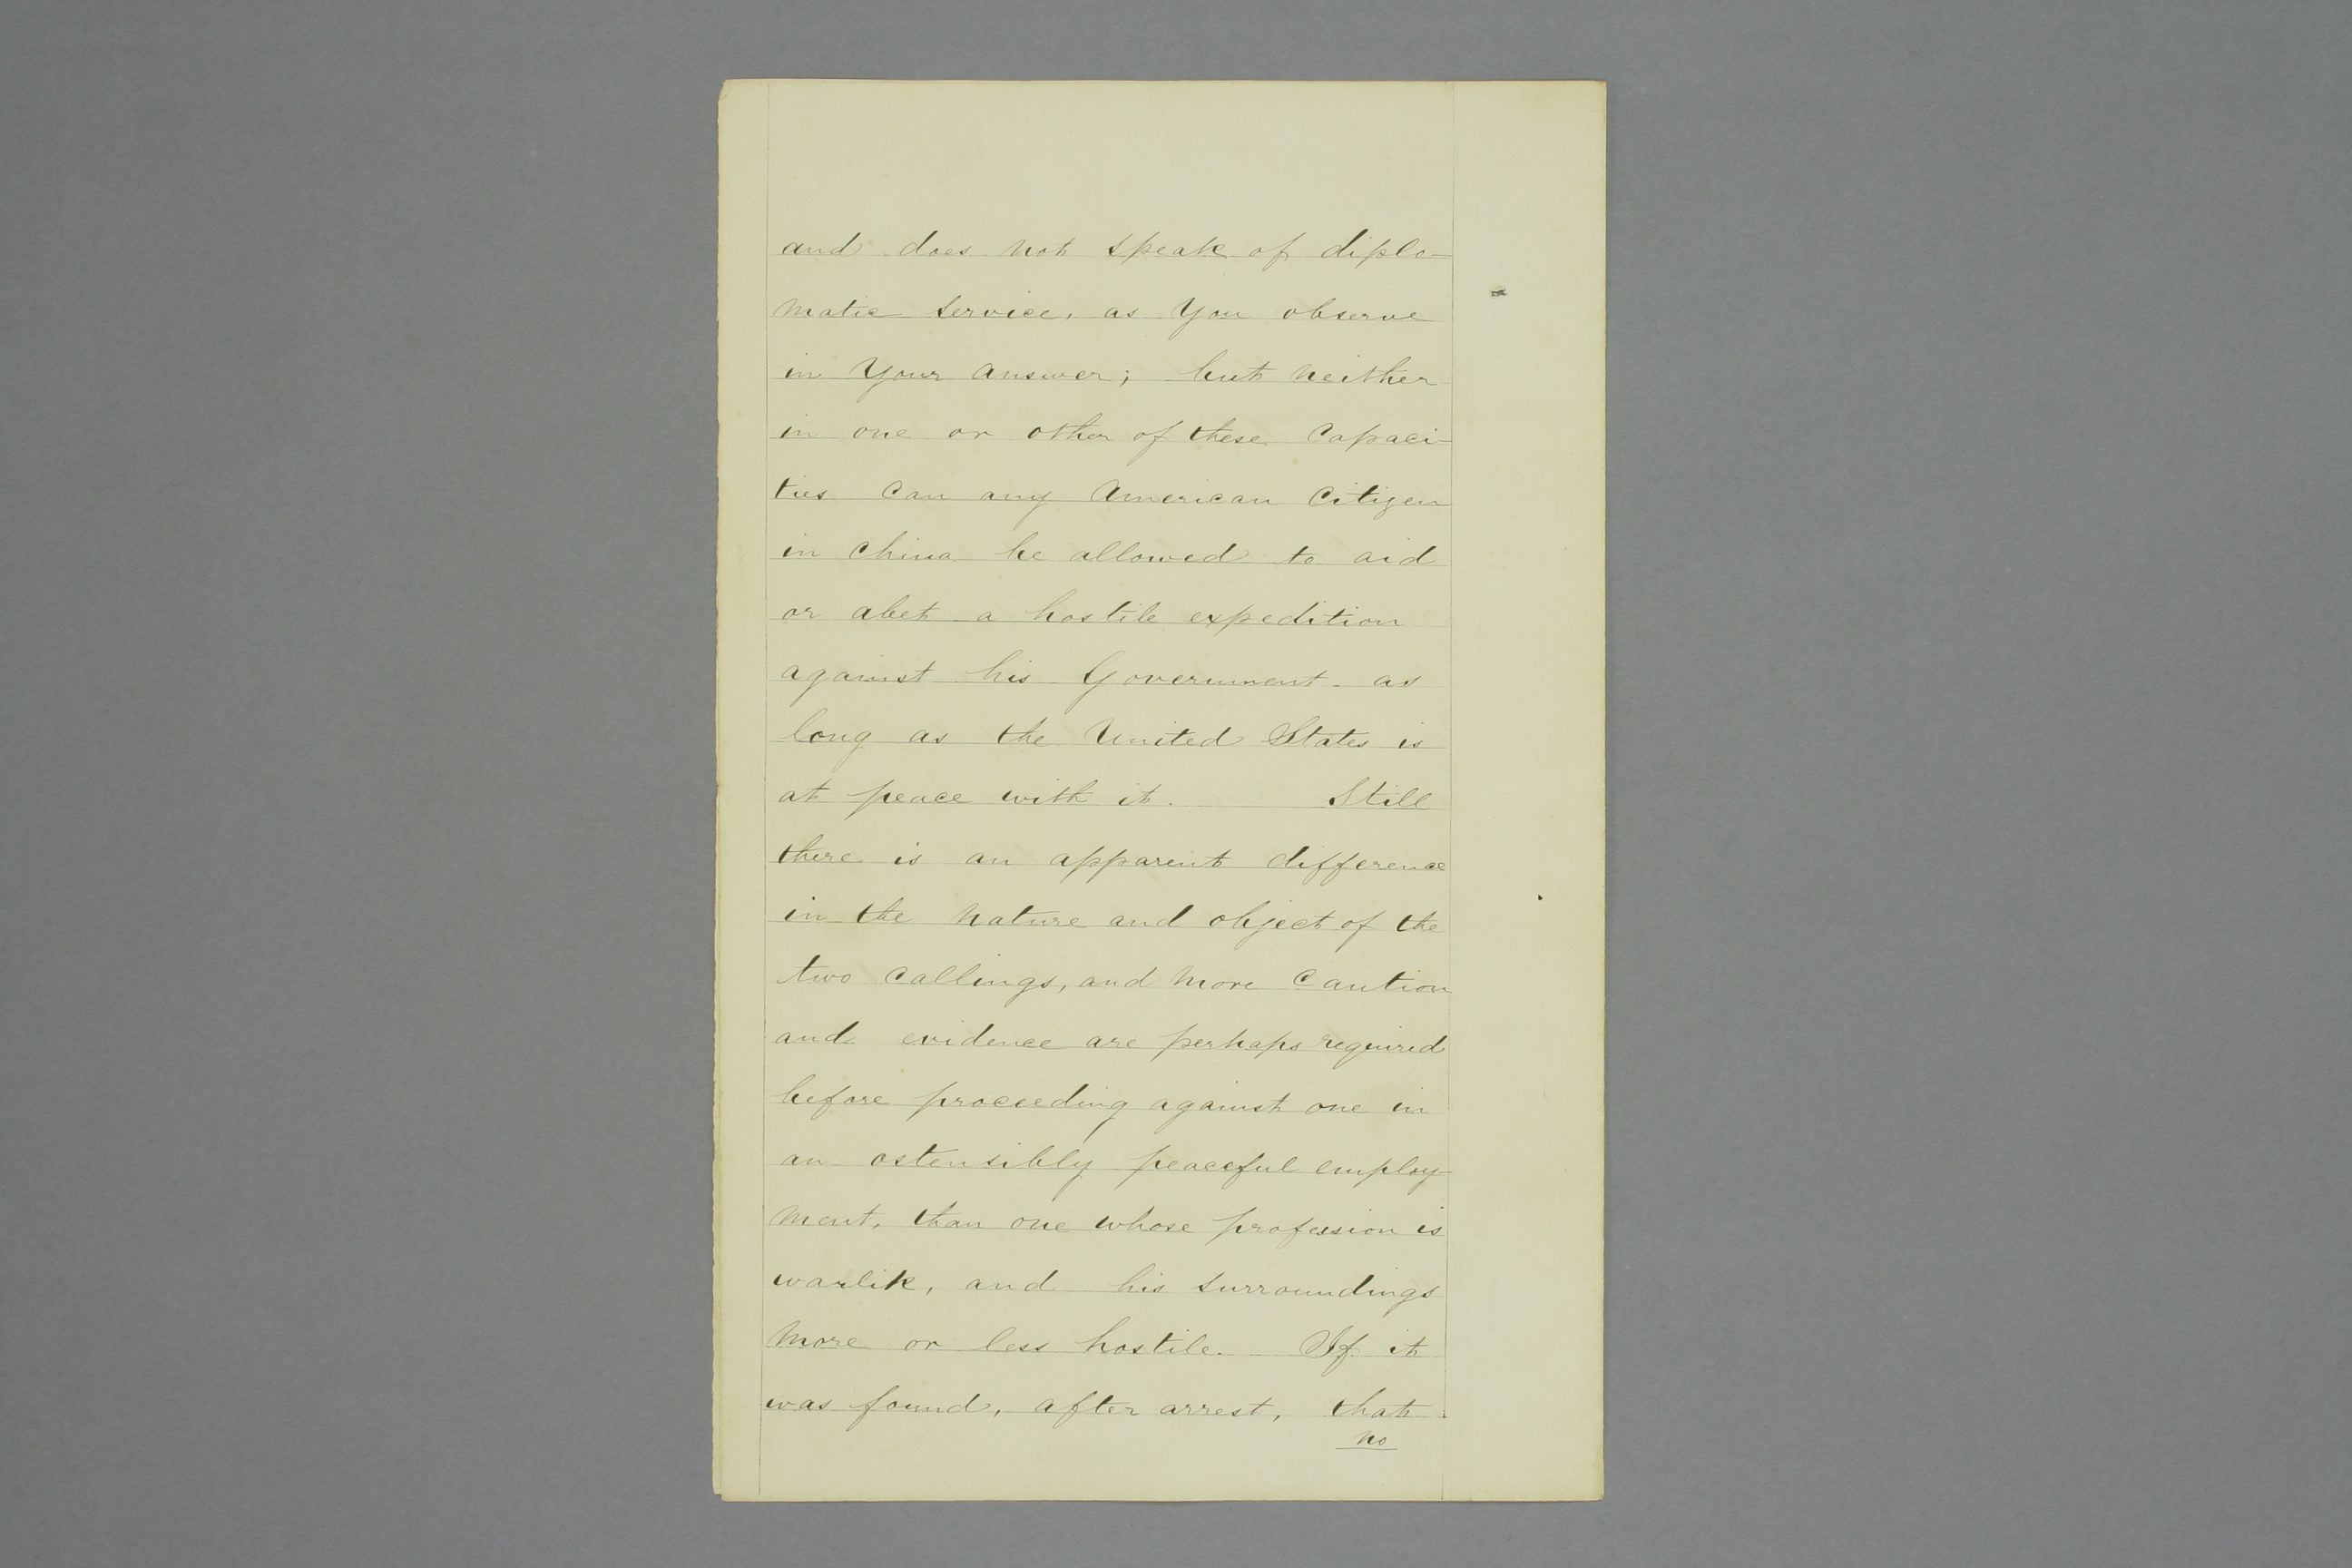 and does not speak of diplo-
matic service, as you observe
in your answer; but neither
in one or other of these capaci-
ties can any American citizen
in China be allowed to aid
or abet a hostile expedition
against his Government as
long as the United States is
at peace with it. Still
there is an apparent difference
in the nature and object of the
two callings, and more caution
and evidence are perhaps required
before proceeding against one in
an ostensibly peaceful employ-
ment, than one whose profession is
warlik, and his surroundings
more or less hostile. If it
was found, after arrest, that
no